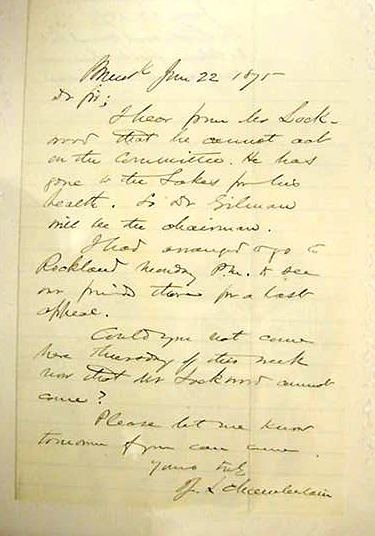 Brunsk June 22 1875
Dr Sir;
I hear from Mr Lock-
wood that he cannot act
on the Committee. He has
gone to the Lakes for his
health. So Dr Gilman
will be the chairman.
I had arranged to go to
Rockland Monday P.M. to see
our friends there for a last
appeal.
Could you not come
here Thursday of this week
now that Mr Lockwood cannot
come?
Please let me know
tomorrow if you can come.
Yours
J. L. Chamberlain